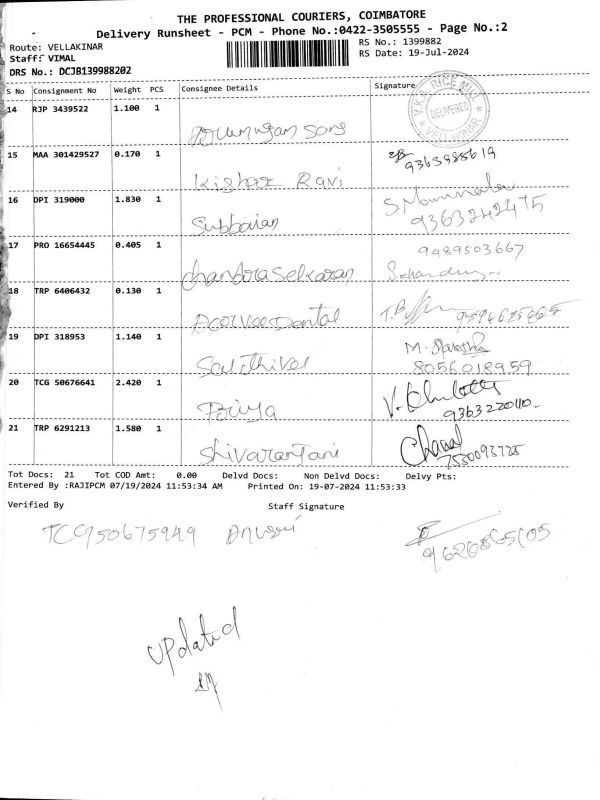 THE PROFESSIONAL COURIERS, COIMBATORE
Delivery Runsheet - PCM - Phone No.:0422-3505555 - Page No.:2
Route: VELLAKINAR
RS No.: 1399882
Staff: VIMAL
RS Date: 19-Jul-2024
DRS No.: DCJB139988202
S No Consignment No Weight PCS Consignee Details Signature
14 RJP 3439522 1.100 1
DELIVERED
VELLAKINAR
15 MAA 301429527 0.170 1 9363985619
Kishor Ravi
16 DPI 319000 1.830 1
Subbaian 9363242475
17 PRO 16654445 0.405 1 9489503667
Chandrasekaran
18 TRP 6406432 0.130 1
Dental
19 DPI 318953 1.140 1
Sakthivel 8056018959
20 TCG 50676641 2.420 1
Priya 9363220110
21 TRP 6291213 1.580 1
Shivaranjani 7550093725
Tot Docs: 21 Tot COD Amt: 0.00 Delvd Docs: Non Delvd Docs: Delvy Pts:
Entered By :RAJIPCM 07/19/2024 11:53:34 AM Printed On: 19-07-2024 11:53:33
Verified By Staff Signature
updated